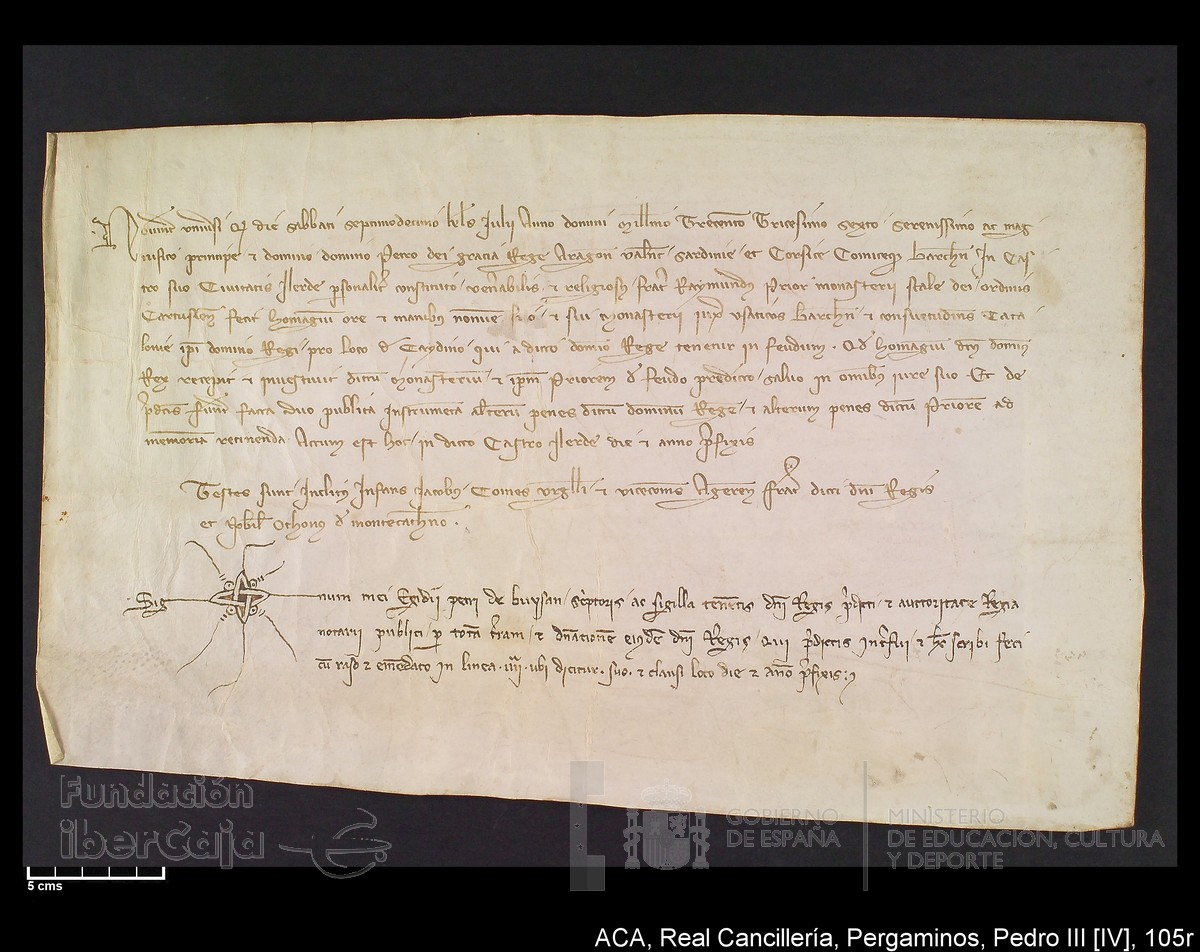 Noverint universi q̄ die sabbati septimodecimo kl̄s Julii Anno domini Millīmo Trecentō Tricesimo sexto serenissimo ac mag
nifico principe et domino domino Petro dei gracia Rege Aragon̄ Valen̄t Sardinie et Corsice Comiteq̄ Barchn̄ In Cas
tro suo Civitatis Ilerde p̱sonalit̄ constituto veñabilis et religios⁹ frat̄ Raymund⁹ Prior monasterii scale dei ordinis
Cartusien̄ fecit homagiū ore et manib⁹ nomīe suo et sui Monasterii iuxͣ Usaticos Barchn̄ et consuetudinēs Cata
lonie ip̄i domino Regi pro loco d̄ qui a dicto domīo Rege tenetur in feudum. Qd̄ homagiū dc̄m domin⁹
Rex recepit et investivit dictū Monasteriū et ip̄m Priorem d̄ feudo predicto salvo in omīb⁹ iure suo Et de
p̄dc̄is fuer̄t facta duo publica Instrum̄ta alterū penes dictū dominū Regē et alterum penes dictū Priorē ad
memoriā retinenda Actum est hoc in dicto Castro Ilerde die et anno p̄fixis
Testes sunt Inclit⁹ Infans Jacob⁹ Comes Urgelli et vicecomēs Ageren̄ frat̄ dicti dn̄i Regis
et Nobil̄ Othon⁹ d̄ montecathēno.
Sig num mei Egidii petri de buysan sc̄ptoris ac sigilla tenētis dn̄i Regis p̄dicti et auctoritate Regia
notarii publici p̱ totā t̄ram et dn̄acionē eiusdē dn̄i Regis Qui p̄dictis int̄fui et hͨ scribi feci
cū raso et emēdato in linea .iiii. ubi dicitur. suo. et clausi loco die et añō p̄fixis
Fundación
iberCaja
GOBIERNO
DE ESPAÑA
MINISTERIO
DE EDUCACIÓN, CULTURA
Y DEPORTE
5 cms
ACA, Real Cancillería, Pergaminos, Pedro III [IV], 105r